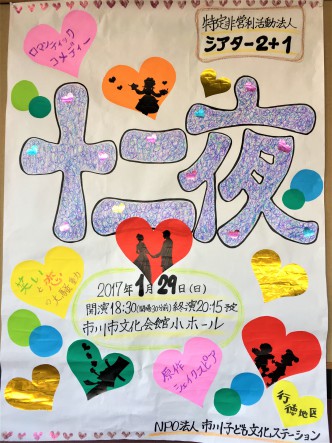 特定非営利活動法人
シアター2+1
ロマンティック
コメディー
十二夜
笑いと恋
の大騒動
2017年1月29日(日)
開演18:30(開場30分前)終演20:15予定
市川市文化会館小ホール
原作
シェイクスピア
行徳地区
NPO法人市川子ども文化ステーション